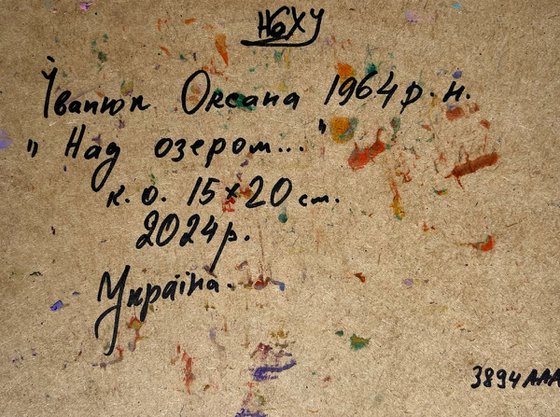 НСХУ
Іванюк Оксана 1964 р. н.
"Над озером..."
к. о. 15×20 см.
2024 р.
Україна.
3894AAA